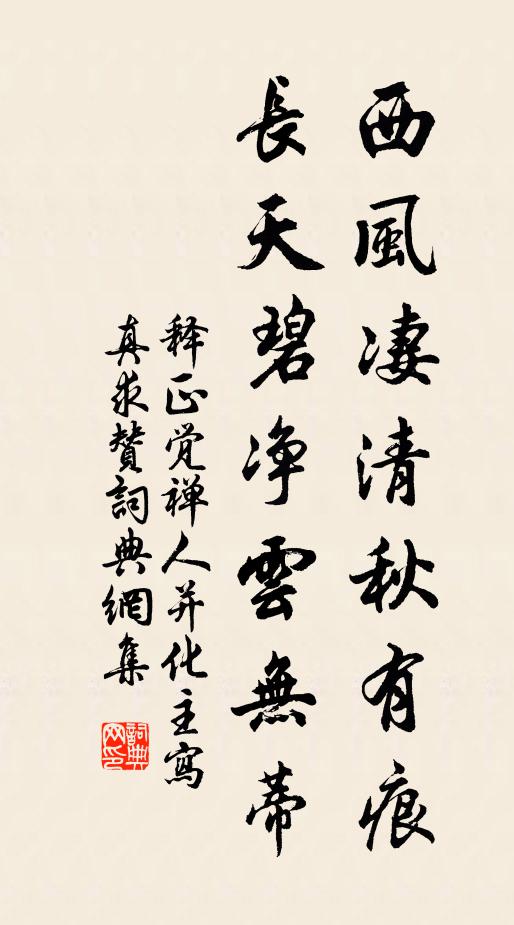 西風凄清秋有痕
長天碧净雲無蒂
释正觉禅人并化主寫
真求贊詞典網集
詞典网印